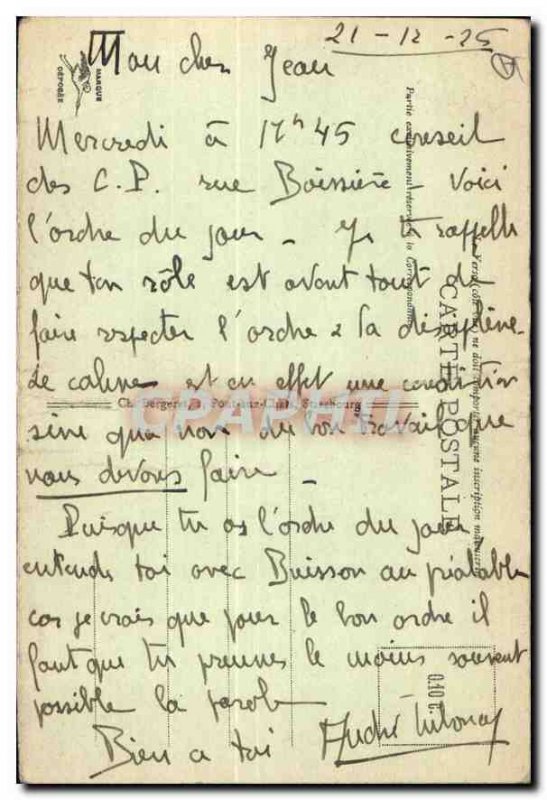 21 - 12 - 25
Mon cher Jean
MARQUE
DÉPOSÉE
Mercredi à 17h45 conseil
des C.P. rue Boissière - Voici
l'ordre du jour - Je te rappelle
que ton rôle est avant tout de
faire respecter l'ordre & la discipline
Le calme est en effet une condition
sine qua non du bon travail que
nous devons faire -
Puisque tu as l'ordre du jour
entends toi avec Buisson au préalable
car je crois que pour le bon ordre il
faut que tu prennes le moins souvent
possible la parole
Bien à toi André
CARTE POSTALE
Partie exclusivement réservée à la Correspondance
Ch. Bergeret, Strasbourg
CPAPHIL
0.10 c.